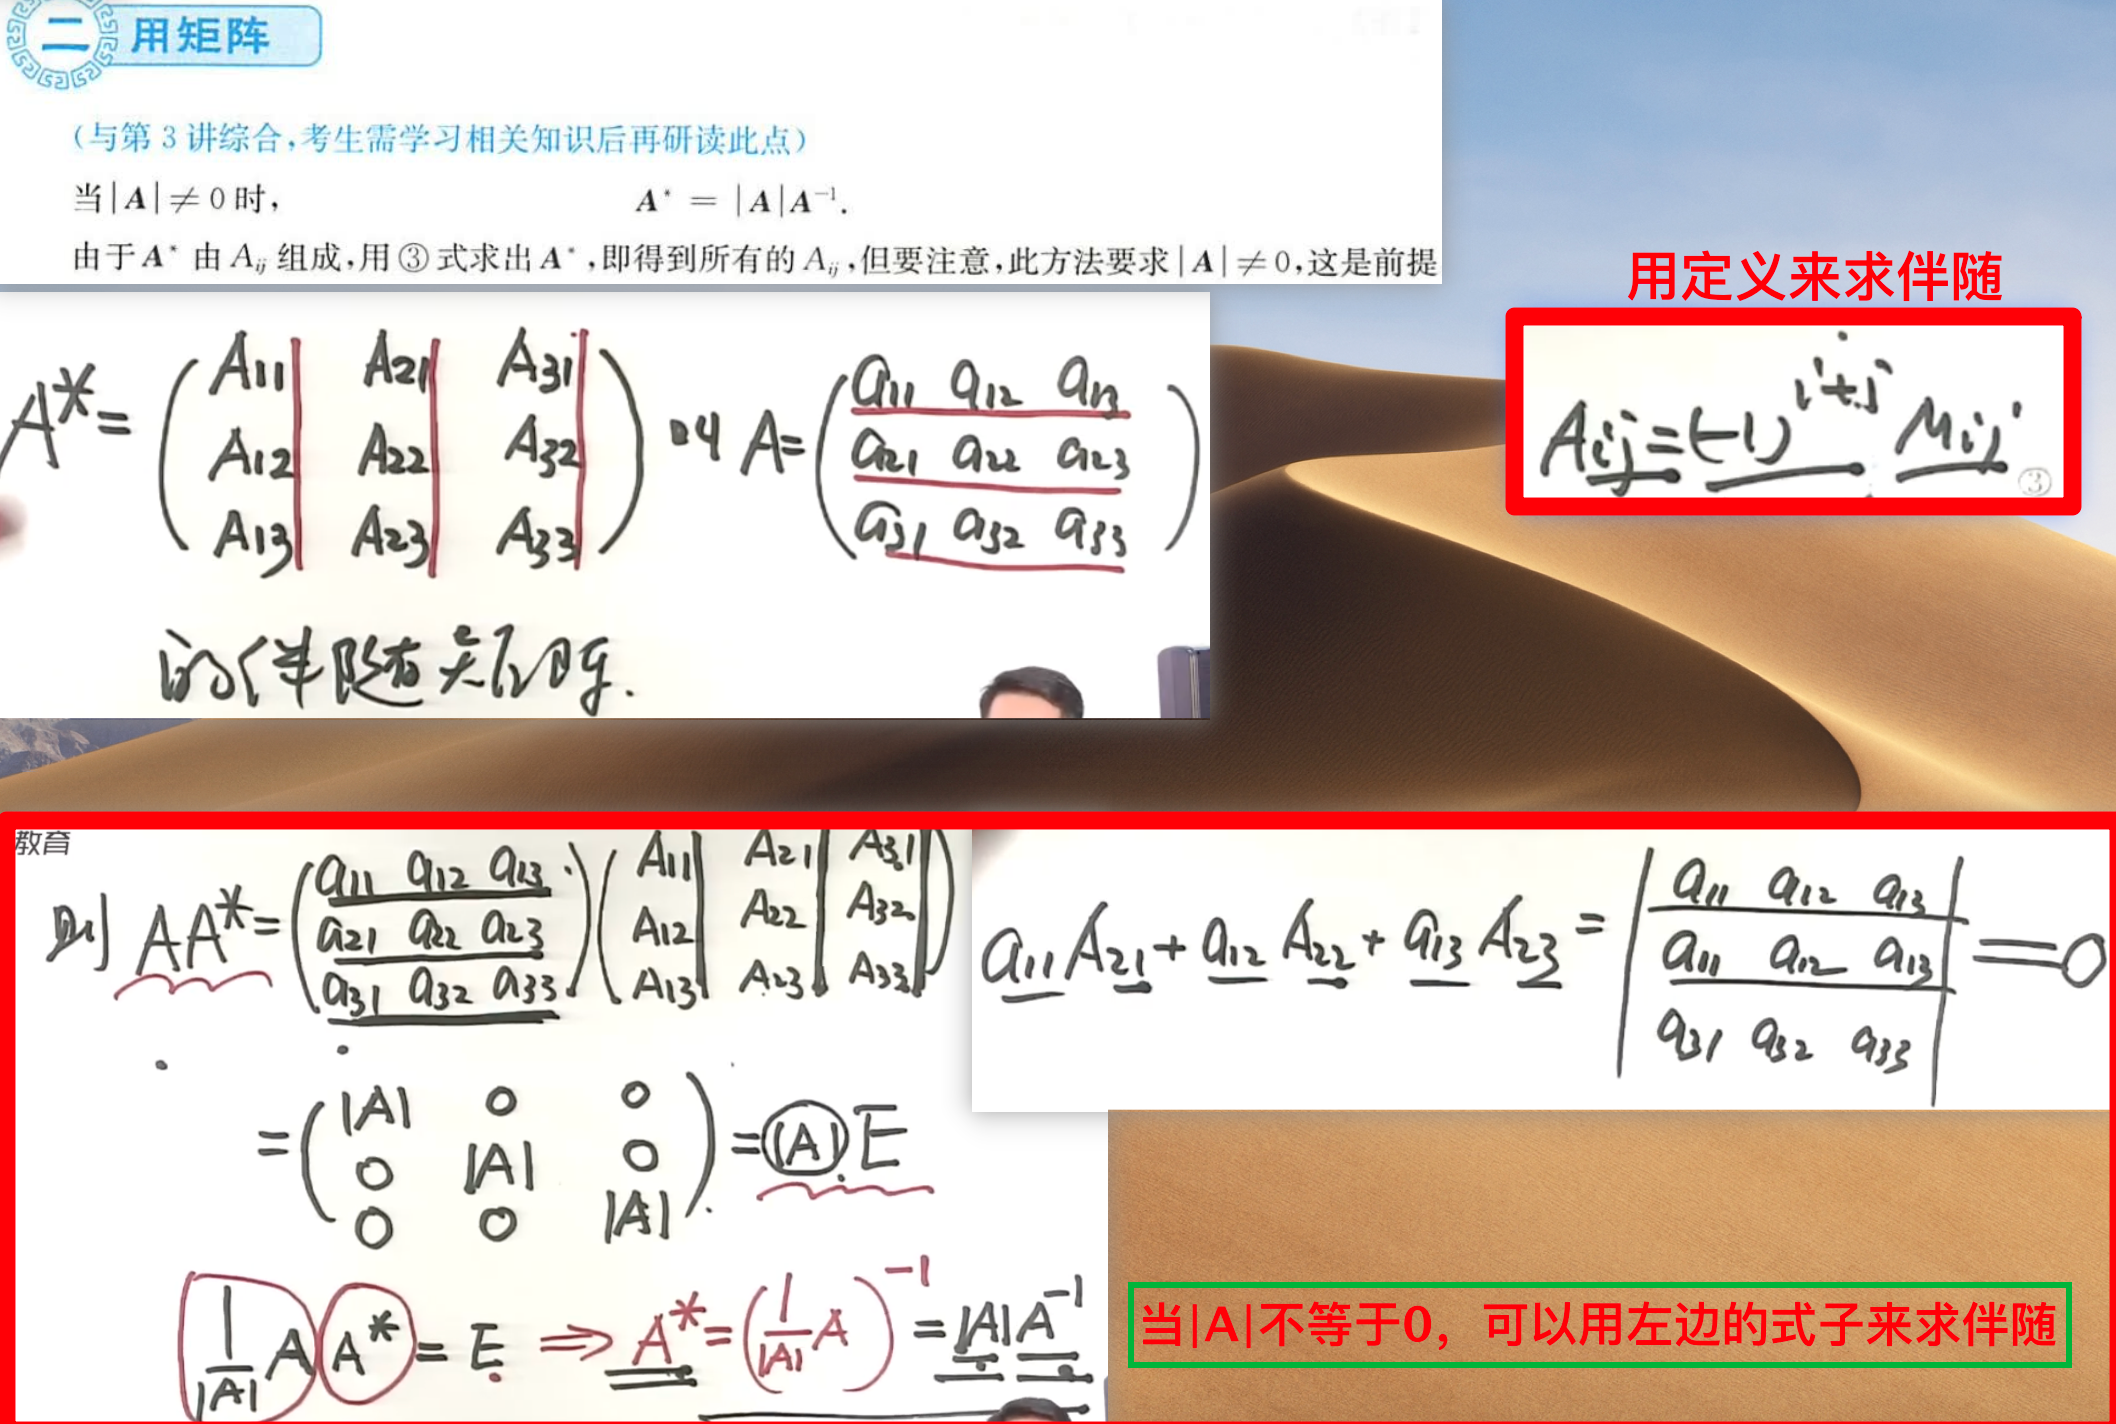 二 用矩阵
(与第 3 讲综合,考生需学习相关知识后再研读此点)
当|A|≠0时, A* = |A|A⁻¹.
由于A* 由 Aij 组成,用③式求出A*,即得到所有的 Aij,但要注意,此方法要求|A|≠0,这是前提
用定义来求伴随
Aij=(-1)^{i+j} Mij
③
A*= (A11 A21 A31
A12 A22 A32
A13 A23 A33) 叫 A= (a11 a12 a13
a21 a22 a23
a31 a32 a33)
的伴随矩阵.
教育
则 AA*= (a11 a12 a13
a21 a22 a23
a31 a32 a33) (A11 A21 A31
A12 A22 A32
A13 A23 A33)
= (|A| 0 0
0 |A| 0
0 0 |A|) = |A| E
1/|A| A A* = E ⇒ A* = (1/|A| A)⁻¹ = |A|A⁻¹
a11A21 + a12A22 + a13A23 = |a11 a12 a13
a11 a12 a13
a31 a32 a33| = 0
当|A|不等于0，可以用左边的式子来求伴随